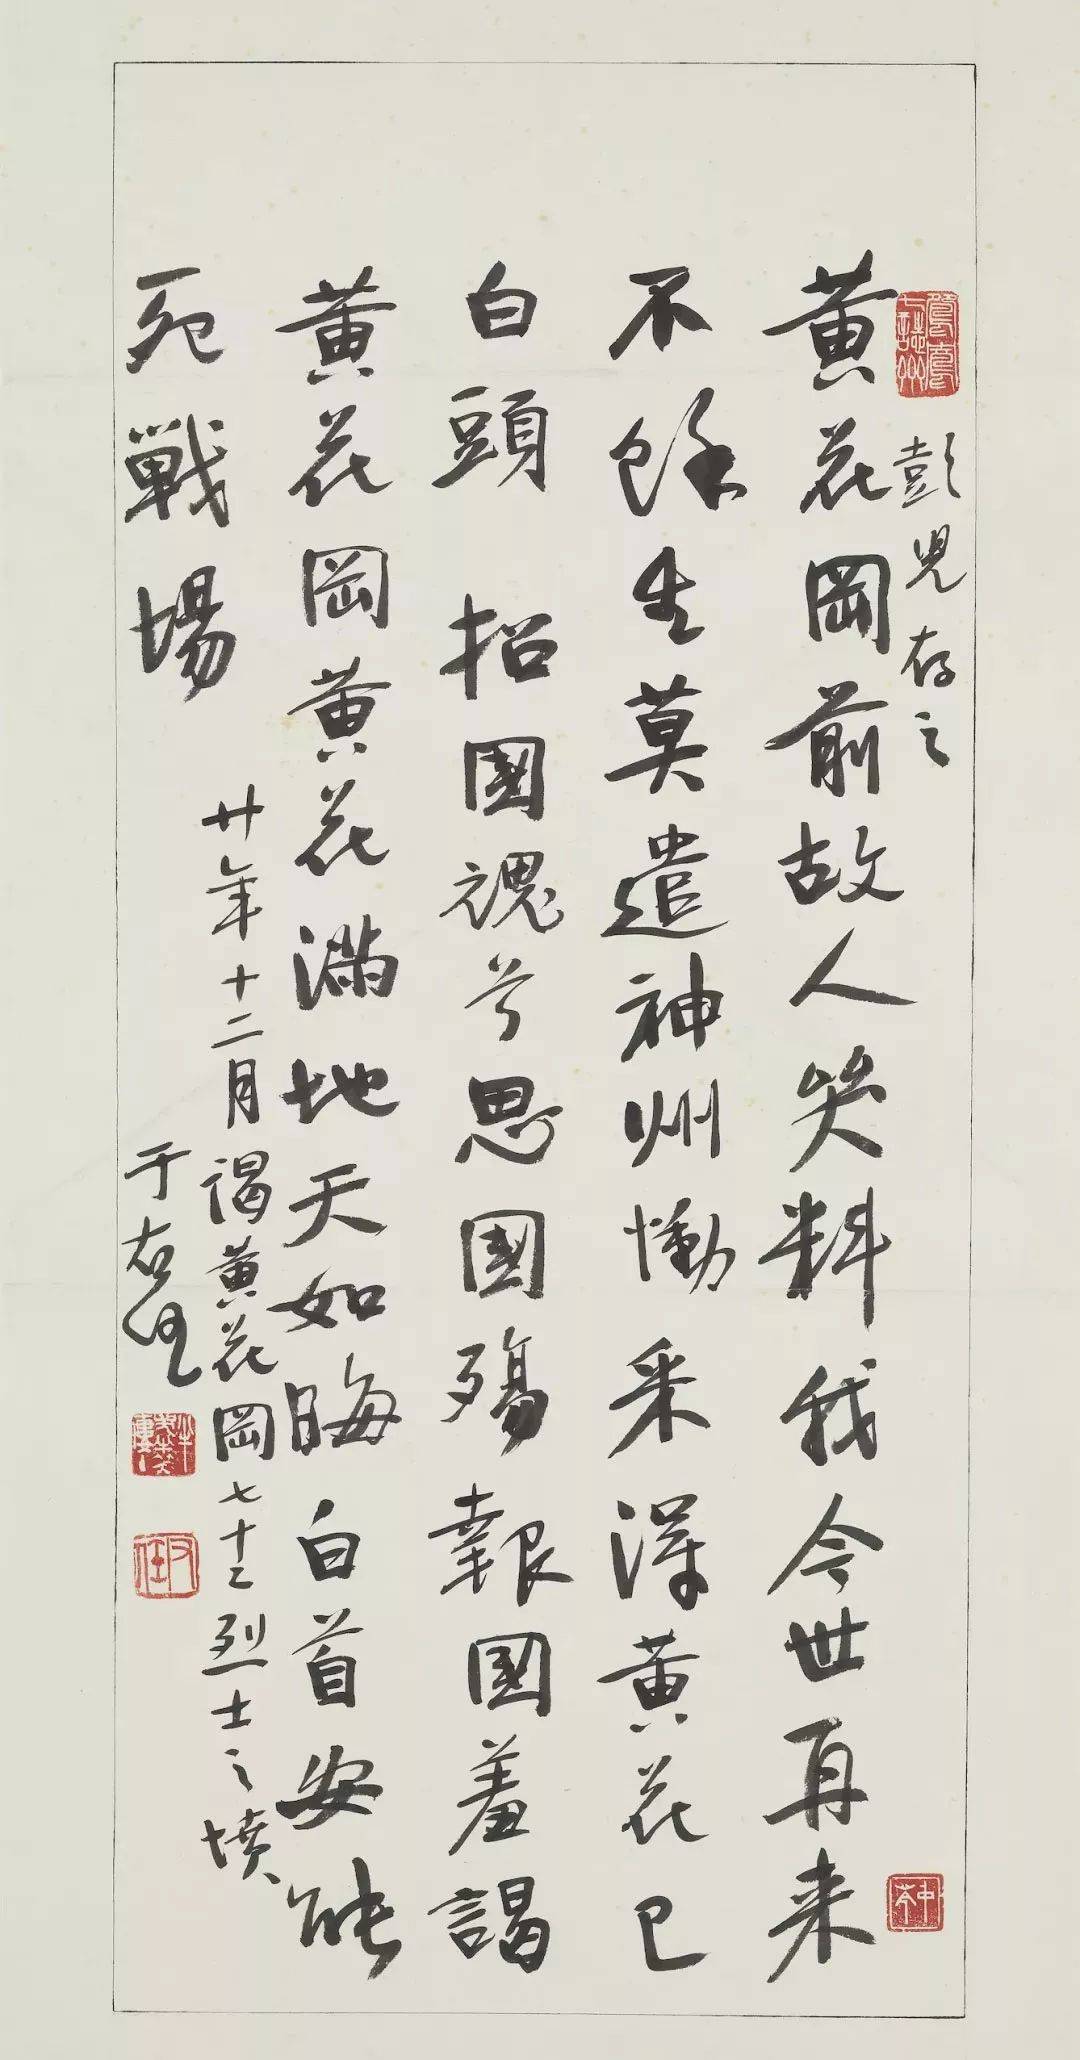 彭兒存之
黃花岡前故人哭料我今世再来
不餘生莫遣神州慟采得黃花已
白頭招國魂兮思國殤報國羞謁
黃花岡黃花滿地天如晦白首安能
死戰場
廿年十二月謁黃花岡七十二烈士之墳
于右任
右任